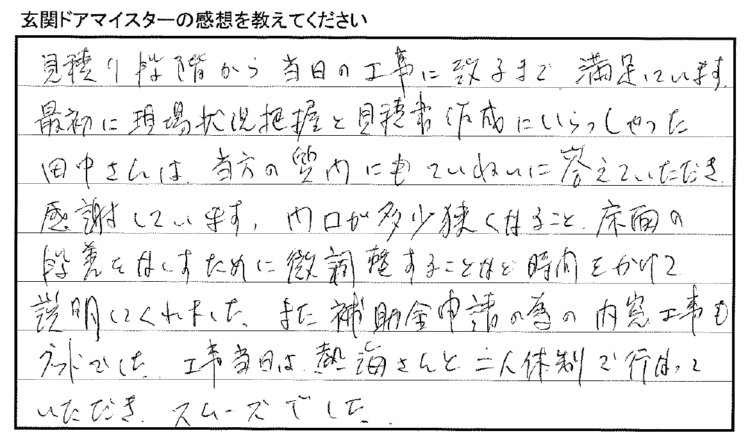 玄関ドアマイスターの感想を教えてください
見積り段階から当日の工事に致るまで満足しています。
最初に現場状況把握と見積書作成にいらっしゃった
田中さんは、当方の質問にもていねいに答えていただき、
感謝しています。間口が多少狭くなること、床面の
段差をなくすために微調整することなど時間をかけて
説明してくれました。また補助金申請の為の内窓工事も
グッドでした。工事当日は、熱海さんと二人体制で行なって
いただき、スムーズでした。